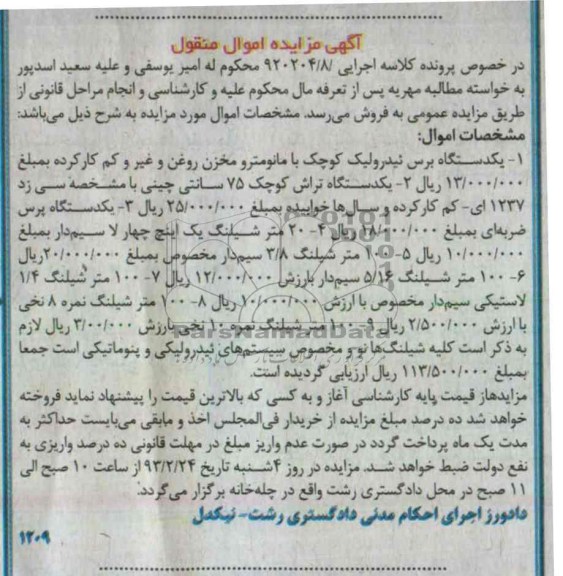 آگهی مزایده اموال منقول
در خصوص پرونده کلاسه اجرایی /۹۲۰۲۰۴/۸ محکوم له امیر یوسفی و علیه سعید اسدپور
به خواسته مطالبه مهریه پس از تعرفه مال محکوم علیه و کارشناسی و انجام مراحل قانونی از
طریق مزایده عمومی به فروش می‌رسد. مشخصات اموال مورد مزایده به شرح ذیل می‌باشد:
مشخصات اموال:
۱- یکدستگاه پرس ئیدرولیک کوچک با مانومترو مخزن روغن و غیر و کم کارکرده بمبلغ
۱۳/۰۰۰/۰۰۰ ریال ۲- یکدستگاه تراش کوچک ۷۵ سانتی چینی با مشخصه سی زد
۱۲۳۷ ای- کم کارکرده و سال‌ها خوابیده بمبلغ ۲۵/۰۰۰/۰۰۰ ریال ۳- یکدستگاه پرس
ضربه‌ای بمبلغ ۱۸/۰۰۰/۰۰۰ ریال ۴- ۲۰ متر شیلنگ یک اینچ چهار لا سیم‌دار بمبلغ
۱۰/۰۰۰/۰۰۰ ریال ۵- ۱۰۰ متر شیلنگ ۳/۸ سیم‌دار مخصوص بمبلغ ۲۰/۰۰۰/۰۰۰ریال
۶- ۱۰۰ متر شیلنگ ۵/۱۶ سیم‌دار بارزش ۱۲/۰۰۰/۰۰۰ ریال ۷- ۱۰۰ متر شیلنگ ۱/۴
لاستیکی سیم‌دار مخصوص با ارزش ۱۰/۰۰۰/۰۰۰ ریال ۸- ۱۰۰ متر شیلنگ نمره ۸ نخی
با ارزش ۲/۵۰۰/۰۰۰ ریال ۹- ۱۰۰ متر شیلنگ نمره ۱۰ نخی بارزش ۳/۰۰۰/۰۰۰ ریال لازم
به ذکر است کلیه شیلنگ‌ها نو و مخصوص سیستم‌های ئیدرولیکی و پنوماتیکی است جمعا
بمبلغ ۱۱۳/۵۰۰/۰۰۰ ریال ارزیابی گردیده است.
مزایده‌از قیمت پایه کارشناسی آغاز و به کسی که بالاترین قیمت را پیشنهاد نماید فروخته
خواهد شد ده درصد مبلغ مزایده از خریدار فی‌المجلس اخذ و مابقی می‌بایست حداکثر به
مدت یک ماه پرداخت گردد در صورت عدم واریز مبلغ در مهلت قانونی ده درصد واریزی به
نفع دولت ضبط خواهد شد. مزایده در روز ۴شنبه تاریخ ۹۳/۲/۲۴ از ساعت ۱۰ صبح الی
۱۱ صبح در محل دادگستری رشت واقع در چله‌خانه برگزار می‌گردد.
دادورز اجرای احکام مدنی دادگستری رشت- نیکدل
۱۲۰۹
ParsNamadData